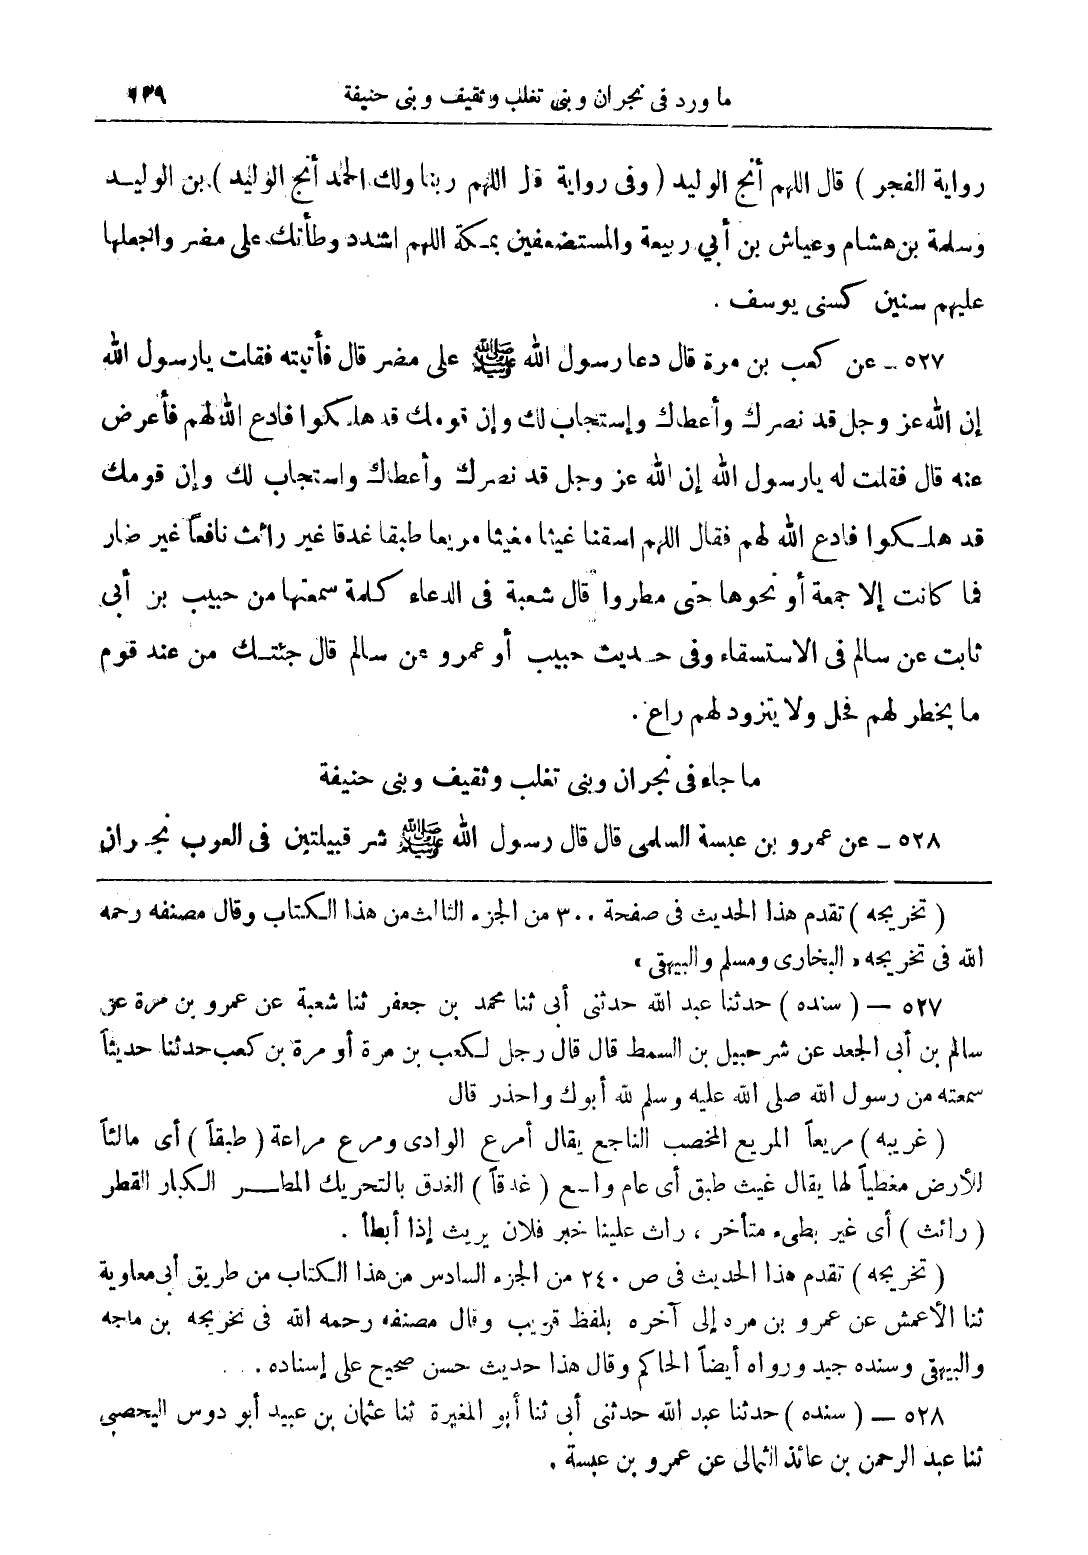 ما ورد فى نجران وبنى تغلب وثقيف وبنى حنيفة ٢٣٩
رواية الفجر ) قال اللهم أنج الوليد ( وفى رواية قال اللهم ربنا ولك الحمد أنج الوليد ) بن الوليد
وسلمة بن هشام وعياش بن أبي ربيعة والمستضعفين بمكة اللهم اشدد وطأتك على مضر واجعلها
عليهم سنين كسنى يوسف .
٥٢٧ ـ عن كعب بن مرة قال دعا رسول الله ﷺ على مضر قال فأتيته فقلت يارسول الله
إن الله عز وجل قد نصرك وأعطاك وإستجاب لك وإن قومك قد هلكوا فادع الله لهم فأعرض
عنه قال فقلت له يارسول الله إن الله عز وجل قد نصرك وأعطاك واستجاب لك وإن قومك
قد هلكوا فادع الله لهم فقال اللهم اسقنا غيثا مغيثا مريعا طبقا غدقا غير رائث نافعاً غير ضار
فما كانت إلا جمعة أو نحوها حتى مطروا قال شعبة فى الدعاء كلمة سمعتها من حبيب بن أبى
ثابت عن سالم فى الاستسقاء وفى حديث حبيب أو عمرو عن سالم قال جئتك من عند قوم
ما يخطر لهم فحل ولا يتزود لهم راع .
ما جاء فى نجران وبنى تغلب وثقيف وبنى حنيفة
٥٢٨ ـ عن عمرو بن عبسة السلمى قال قال رسول الله ﷺ شر قبيلتين فى العرب نجران
( تخريجه ) تقدم هذا الحديث فى صفحة ٣٠٠ من الجزء الثالث من هذا الكتاب وقال مصنفه رحمه
الله فى تخريجه «البخارى ومسلم والبيهقى»
٥٢٧ — ( سنده ) حدثنا عبد الله حدثنى أبى ثنا محمد بن جعفر ثنا شعبة عن عمرو بن مرة عن
سالم بن أبى الجعد عن شرحبيل بن السمط قال قال رجل لكعب بن مرة أو مرة بن كعب حدثنا حديثاً
سمعته من رسول الله صلى الله عليه وسلم لله أبوك واحذر قال
( غريبه ) مريعاً المريع المخصب الناجع يقال أمرع الوادى ومرع مراعة ( طبقاً ) أى مالئاً
للأرض مغطياً لها يقال غيث طبق أى عام واسع ( غدقاً ) الغدق بالتحريك المطر الكبار القطر
( رائث ) أى غير بطىء متأخر ، راث علينا خبر فلان يريث إذا أبطأ .
( تخريجه ) تقدم هذا الحديث فى ص ٢٤٠ من الجزء السادس من هذا الكتاب من طريق أبى معاوية
ثنا الأعمش عن عمرو بن مره إلى آخره بلفظ قريب وقال مصنفه رحمه الله فى تخريجه بن ماجه
والبيهقى وسنده جيد ورواه أيضاً الحاكم وقال هذا حديث حسن صحيح على إسناده .
٥٢٨ — ( سنده ) حدثنا عبد الله حدثنى أبى ثنا أبو المغيرة ثنا عثمان بن عبيد أبو دوس اليحصبى
ثنا عبد الرحمن بن عائذ الثمالى عن عمرو بن عبسة .